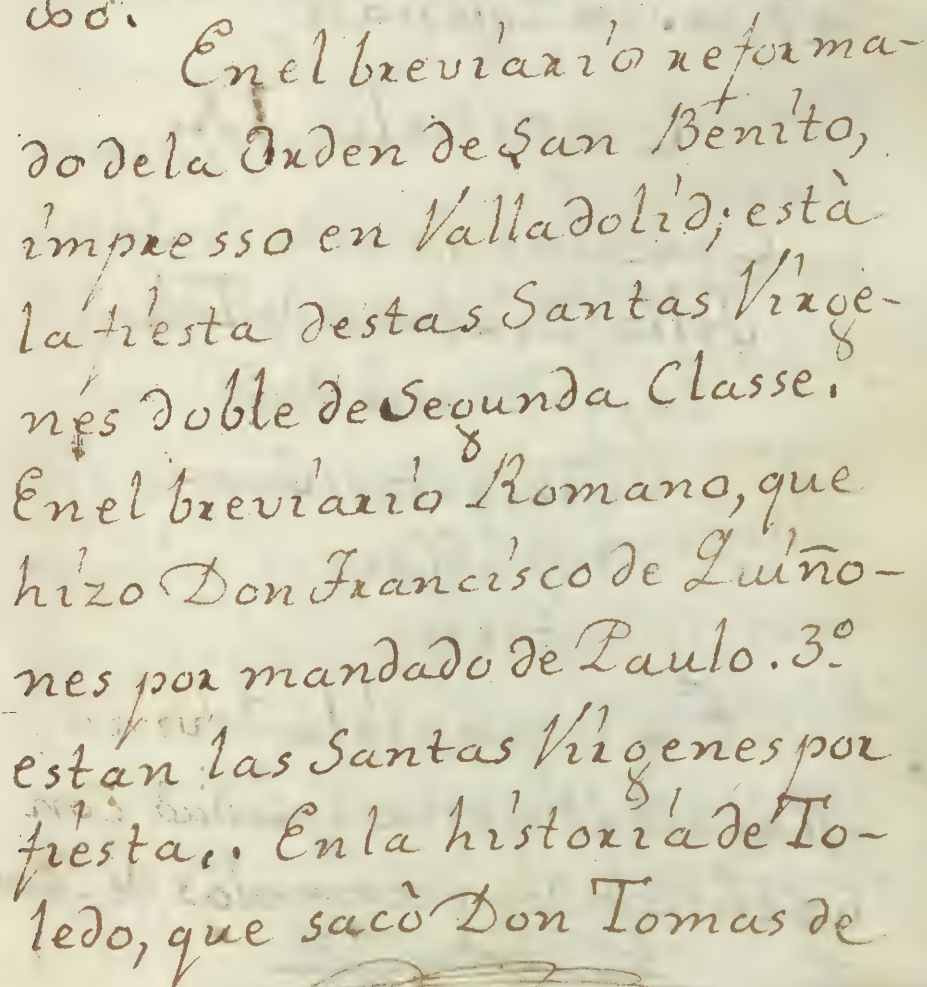 En el breviario reforma-
do de la Orden de San Benito,
impresso en Valladolid; està
la fiesta destas Santas Virge-
nes doble de Segunda Classe.
En el breviario Romano, que
hizo Don Francisco de Quiño-
nes por mandado de Paulo. 3º
estan las Santas Virgenes por
fiesta,. En la historia de To-
ledo, que sacò Don Tomas de